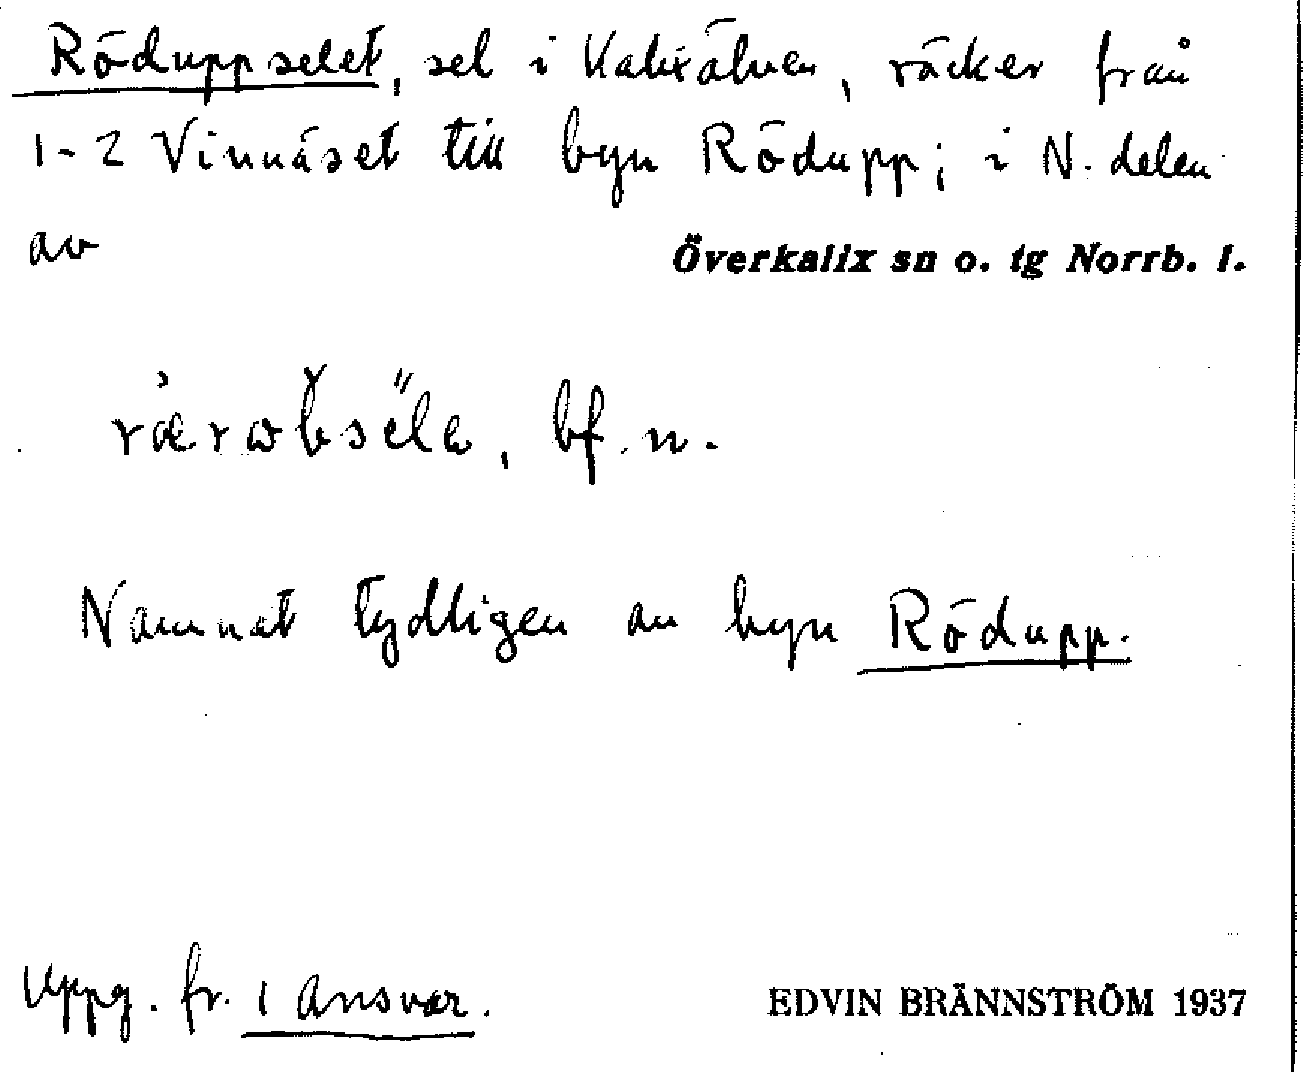 Röduppselet, sel i Kalixälven, räcker från
1-2 Vinnäset till byn Rödupp; i N. delen
av
Överkalix sn o. tg Norrb. l.
bf. n.
Namnat tydligen av byn Rödupp.
Uppg. fr. 1 Ansvar.
EDVIN BRÄNNSTRÖM 1937